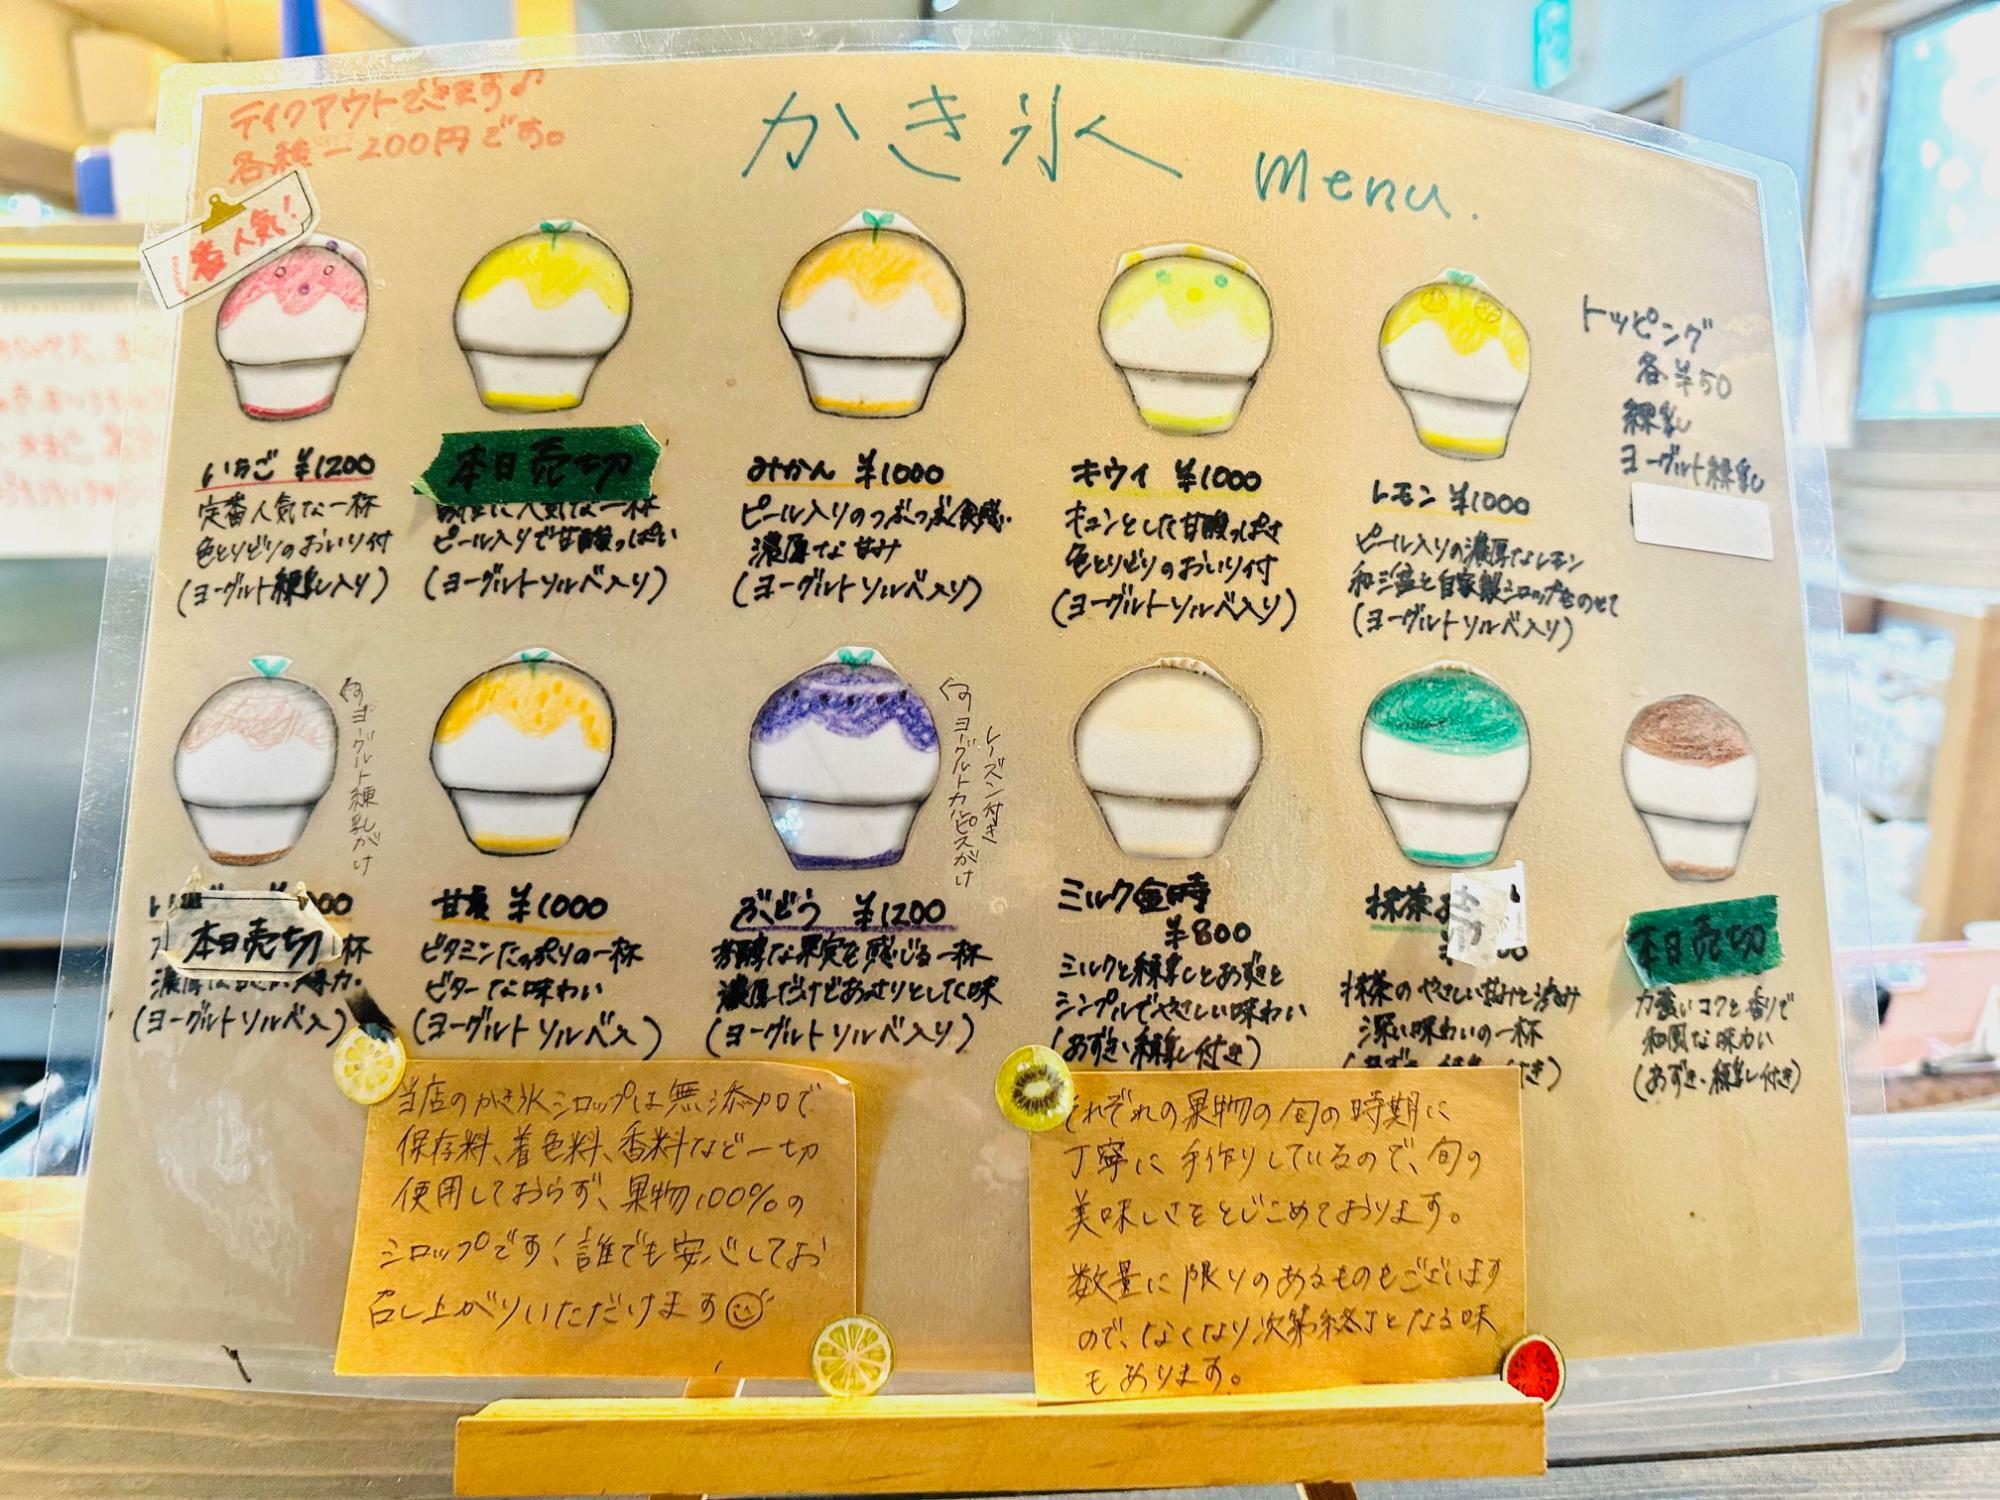 テイクアウトできます♪
各種-200円です。
かき氷 menu.
人気!
いちご ¥1200
定番人気な一杯
色とりどりのおいり付
(ヨーグルト練乳入り)
本日売切
人気な一杯
ピール入りで甘酸っぱい
(ヨーグルトソルベ入り)
みかん ¥1000
ピール入りのつぶつぶ食感。
濃厚な甘み
(ヨーグルトソルベ入り)
キウイ ¥1000
キュンとした甘酸っぱさ
色とりどりのおいり付
(ヨーグルトソルベ入り)
レモン ¥1000
ピール入りの濃厚なレモン
和三盆と自家製シロップものせて
(ヨーグルトソルベ入り)
トッピング
各¥50
練乳
ヨーグルト練乳
ヨーグルト練乳がけ
00
本日売切
杯
(ヨーグルトソルベ入)
甘夏 ¥1000
ビタミンたっぷりの一杯
ビターな味わい
(ヨーグルトソルベ入)
レーズン付き
ヨーグルトカルピスがけ
ぶどう ¥1200
芳醇な果実を感じる一杯
濃厚だけどあっさりとした味
(ヨーグルトソルベ入り)
ミルク金時
¥800
ミルクと練乳とあずきと
シンプルでやさしい味わい
(あずき・練乳付き)
抹茶
抹茶のやさしい甘みと渋み
深い味わいの一杯
付き)
本日売切
力強いコクと香りで
和風な味わい
(あずき・練乳付き)
当店のかき氷シロップは無添加で
保存料、着色料、香料など一切
使用しておらず、果物100%の
シロップです!誰でも安心してお
召し上がりいただけます
それぞれの果物の旬の時期に
丁寧に手作りしているので、旬の
美味しさをとじこめております。
数量に限りのあるものもございます
ので、なくなり次第終了となる味
もあります。